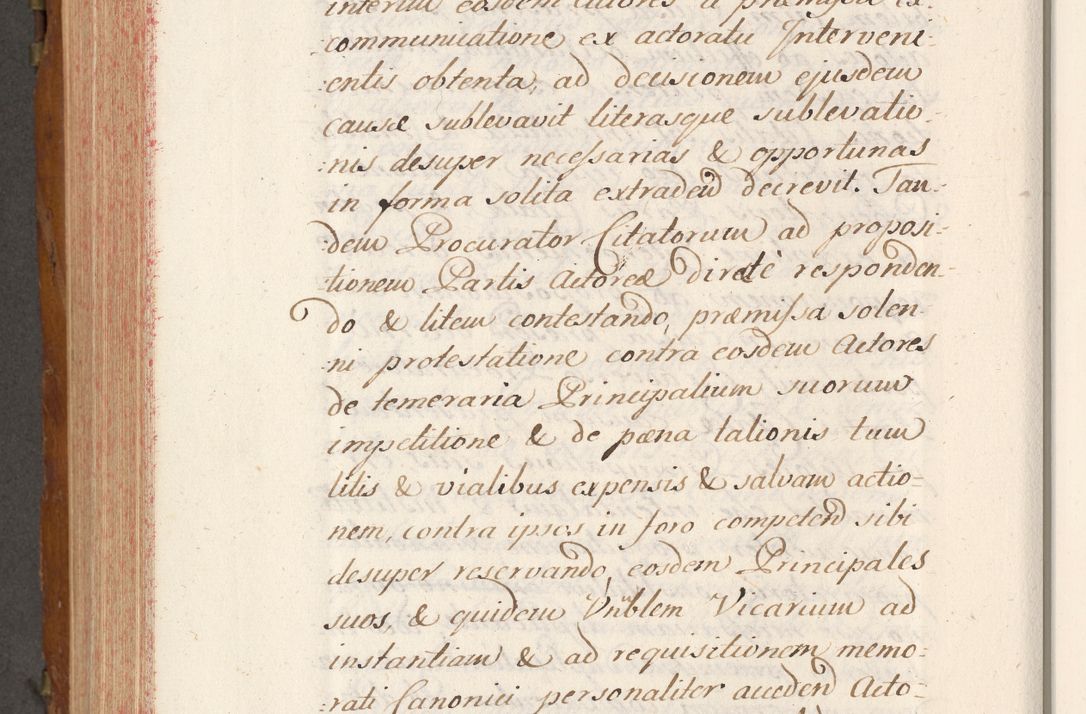 interim eosdem Actores a præmissa ex-
communicatione ex actoratu Interveni-
:entis obtenta, ad decisionem ejusdem
causæ sublevavit literasque sublevatio-
:nis desuper necessarias & opportunas
in forma solita extradend decrevit. Tan-
dem Procurator Citatorum ad proposi-
:tionem Partis Actoreæ directè responden-
do & litem contestando, præmissa solen-
:ni protestatione contra eosdem Actores
de temeraria Principalium suorum
impetitione & de pœna talionis tum
litis & vialibus expensis & salvam actio=
nem, contra ipsos in foro competend sibi
desuper reservando, eosdem Principales
suos, & quidem Vnblem Vicarium ad
instantiam & ad requisitionem memo=
:rati Canonici personaliter accedend Acto=